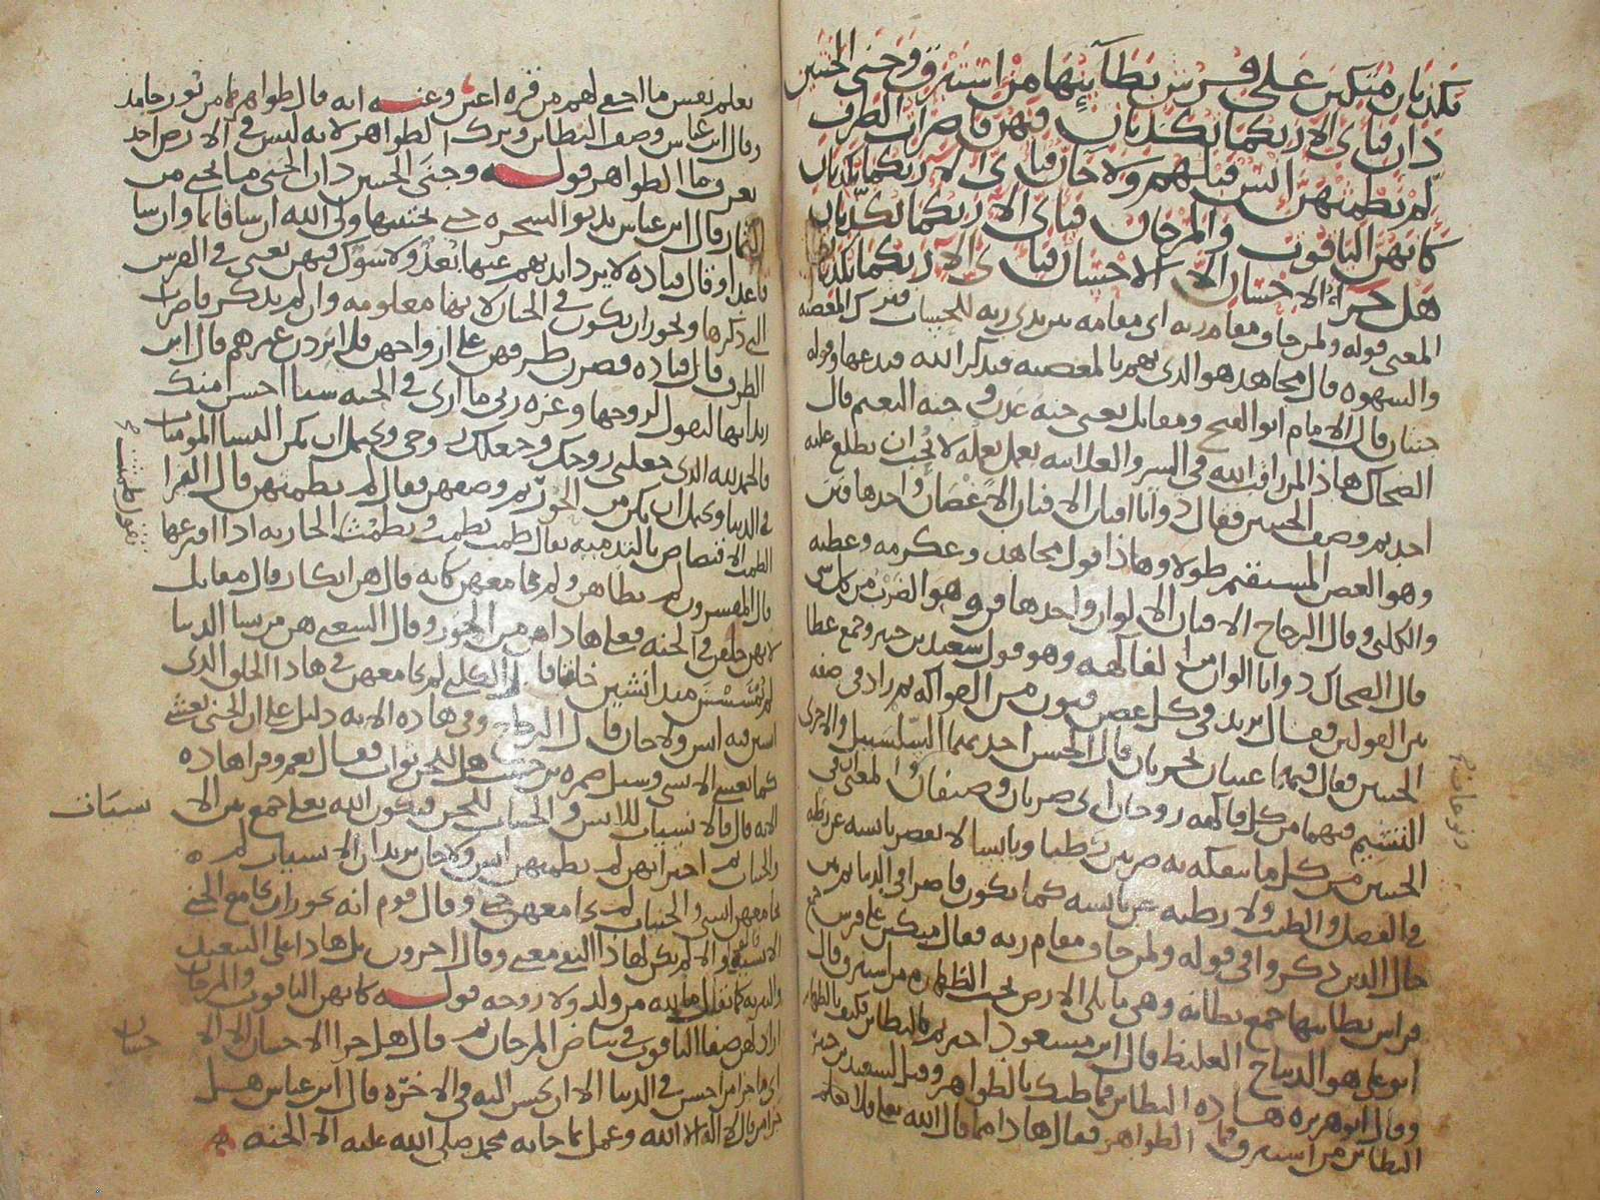 تكذبان متكين على فرش بطآينها من استبرق وجنى الجنتين
دان فباى الا ربكما تكذبان فيهن قاصرات الطرف
لم يطمثهن انس قبلهم ولا جان فباى الا ربكما تكذبان
كانهن الياقوت والمرجان فباى الا ربكما تكذبان
هل جزاء الاحسان الا الاحسان فباى الا ربكما تكذبان
المعنى قوله ولمن خاف مقام ربه اى مقامه بين يدى ربه للحساب فترك المعصيه
والشهوه قال مجاهد هو الذى يهم بالمعصيه فيذكر الله فيدعها وقوله
جنتان قال الامام ابو الفتح ومقاتل يعنى جنه عدن و جنه النعيم قال
الضحاك هاذا لمن راقب الله فى السر والعلانيه بعمل يعمله لا يحب ان يطلع عليه
احد ثم وصف الجنتين فقال ذواتا افنان الافنان الاغصان واحدها فنن
وهو الغصن المستقيم طولا وهاذا قول مجاهد وعكرمه وعطيه
والكلبى وقال الزجاج الافنان الالوان واحدها فن وهو الضرب من كل شى
قال الضحاك ذواتا الوان من الفاكهه وهو قول سعيد بن جبير وجمع عطا
بين القولين فقال يريد فى كل غصن فنون من الفواكه ثم زاد فى صفه
الجنتين فقال فيهما عينان تجريان قال الحسن احديهما السلسبيل والاخرى
التسنيم فيهما من كل فاكهه زوجان اى ضربان وصنفان والمعنى ان فى
الجنتين من كل ما يتفكه به ضربين رطبا ويابسا لا يقصر يابسه عن رطبه
فى الفضل والطيب ولا رطبه عن يابسه كما يكون قاصرا فى الدنيا ثم بين
حال الذين ذكروا فى قوله ولمن خاف مقام ربه فقال متكين على فرش جمع
فراش بطاينها جمع بطانه وهى ما يلى الارض تحت الظهاره من استبرق قال
ابو على هو الديباج الغليظ قال ابن مسعود اخبرتم بالبطاين فكيف بالظهاير
وقال ابو هريره هاذه البطاين فما ظنك بالظواهر وقيل لسعيد بن جبير
البطاين من استبرق فما الظواهر فقال هاذا مما قال الله تعلى فلا تعلم
تعلم نفس ما اخفى لهم من قره اعين وعنه انه قال ظواهرها من نور جامد
وقال ابن عباس وصف البطاين وترك الظواهر لانه ليس فى الارض احد
يعرف ما الظواهر قوله وجنى الجنتين دان الجنى ما يجنى من
الثمار قال ابن عباس تدنو الشجره حتى يجتنيها ولى الله ان شا قايما وان شا
قاعدا وقال قتاده لا يرد ايديهم عنها بعد ولا شوك فيهن يعنى فى الفرش
التى ذكرها ويجوز ان يكون فى الجنان لانها معلومه وان لم يذكر قاصرات
الطرف قال قتاده قصرن طرفهن على ازواجهن فلا يردن غيرهم قال ابن
زيد انها لتقول لزوجها وعزه ربى ما ارى فى الجنه شيا احسن منك
فالحمد لله الذى جعلنى زوجك وجعلك زوجى ويحتمل ان يكن النسا المومنات
فى الدنيا ويحتمل ان يكن من الحور ثم وصفهن فقال لم يطمثهن قال الفرا
الطمث الافتضاض بالتدميه يقال طمث يطمث ويطمث الجاريه اذا افترعها
قال المفسرون لم يطاهن ولم يجامعهن كانه قال هن ابكار وقال مقاتل
لانهن خلقن فى الجنه فعلى هاذا هن من الحور وقال الشعبى هن من نسا الدنيا
لم يمسسن منذ انشين خلقا قال الكلبى لم يجامعهن فى هاذا الخلق الذى
انشين فيه انس ولا جان قال الزجاج وفى هاذه الايه دليل على ان الجنى يغشى
كما يغشى الانسى وسيل ضمره بن حبيب هل للجن ثواب فقال نعم وقرا هاذه
الايه قال فالانسيات للانس والجنيات للجن فيكون الله تعلى جمع بين الانس
والجان ثم اخبر انهن لم يطمثهن انس ولا جان يريد ان الانسيات لم
يجامعهن انسى والجنيات لم يجامعهن جنى وقال قوم انه يجوز ان يجامع الجنى
الانسيه والا لم يكن لهاذا النفى معنى وقال اخرون بل هاذا على التبعيد
والتبريه كما يقال ماله من ولد ولا زوجه قوله كانهن الياقوت والمرجان
اراد لهن صفا الياقوت فى بياض المرجان ثم قال هل جزا الاحسان الا الا
اى ما جزا من احسن فى الدنيا الا ان يحسن اليه فى الاخره قال ابن عباس هل
جزا من قال لا اله الا الله وعمل بما جا به محمد صلى الله عليه الا الجنه